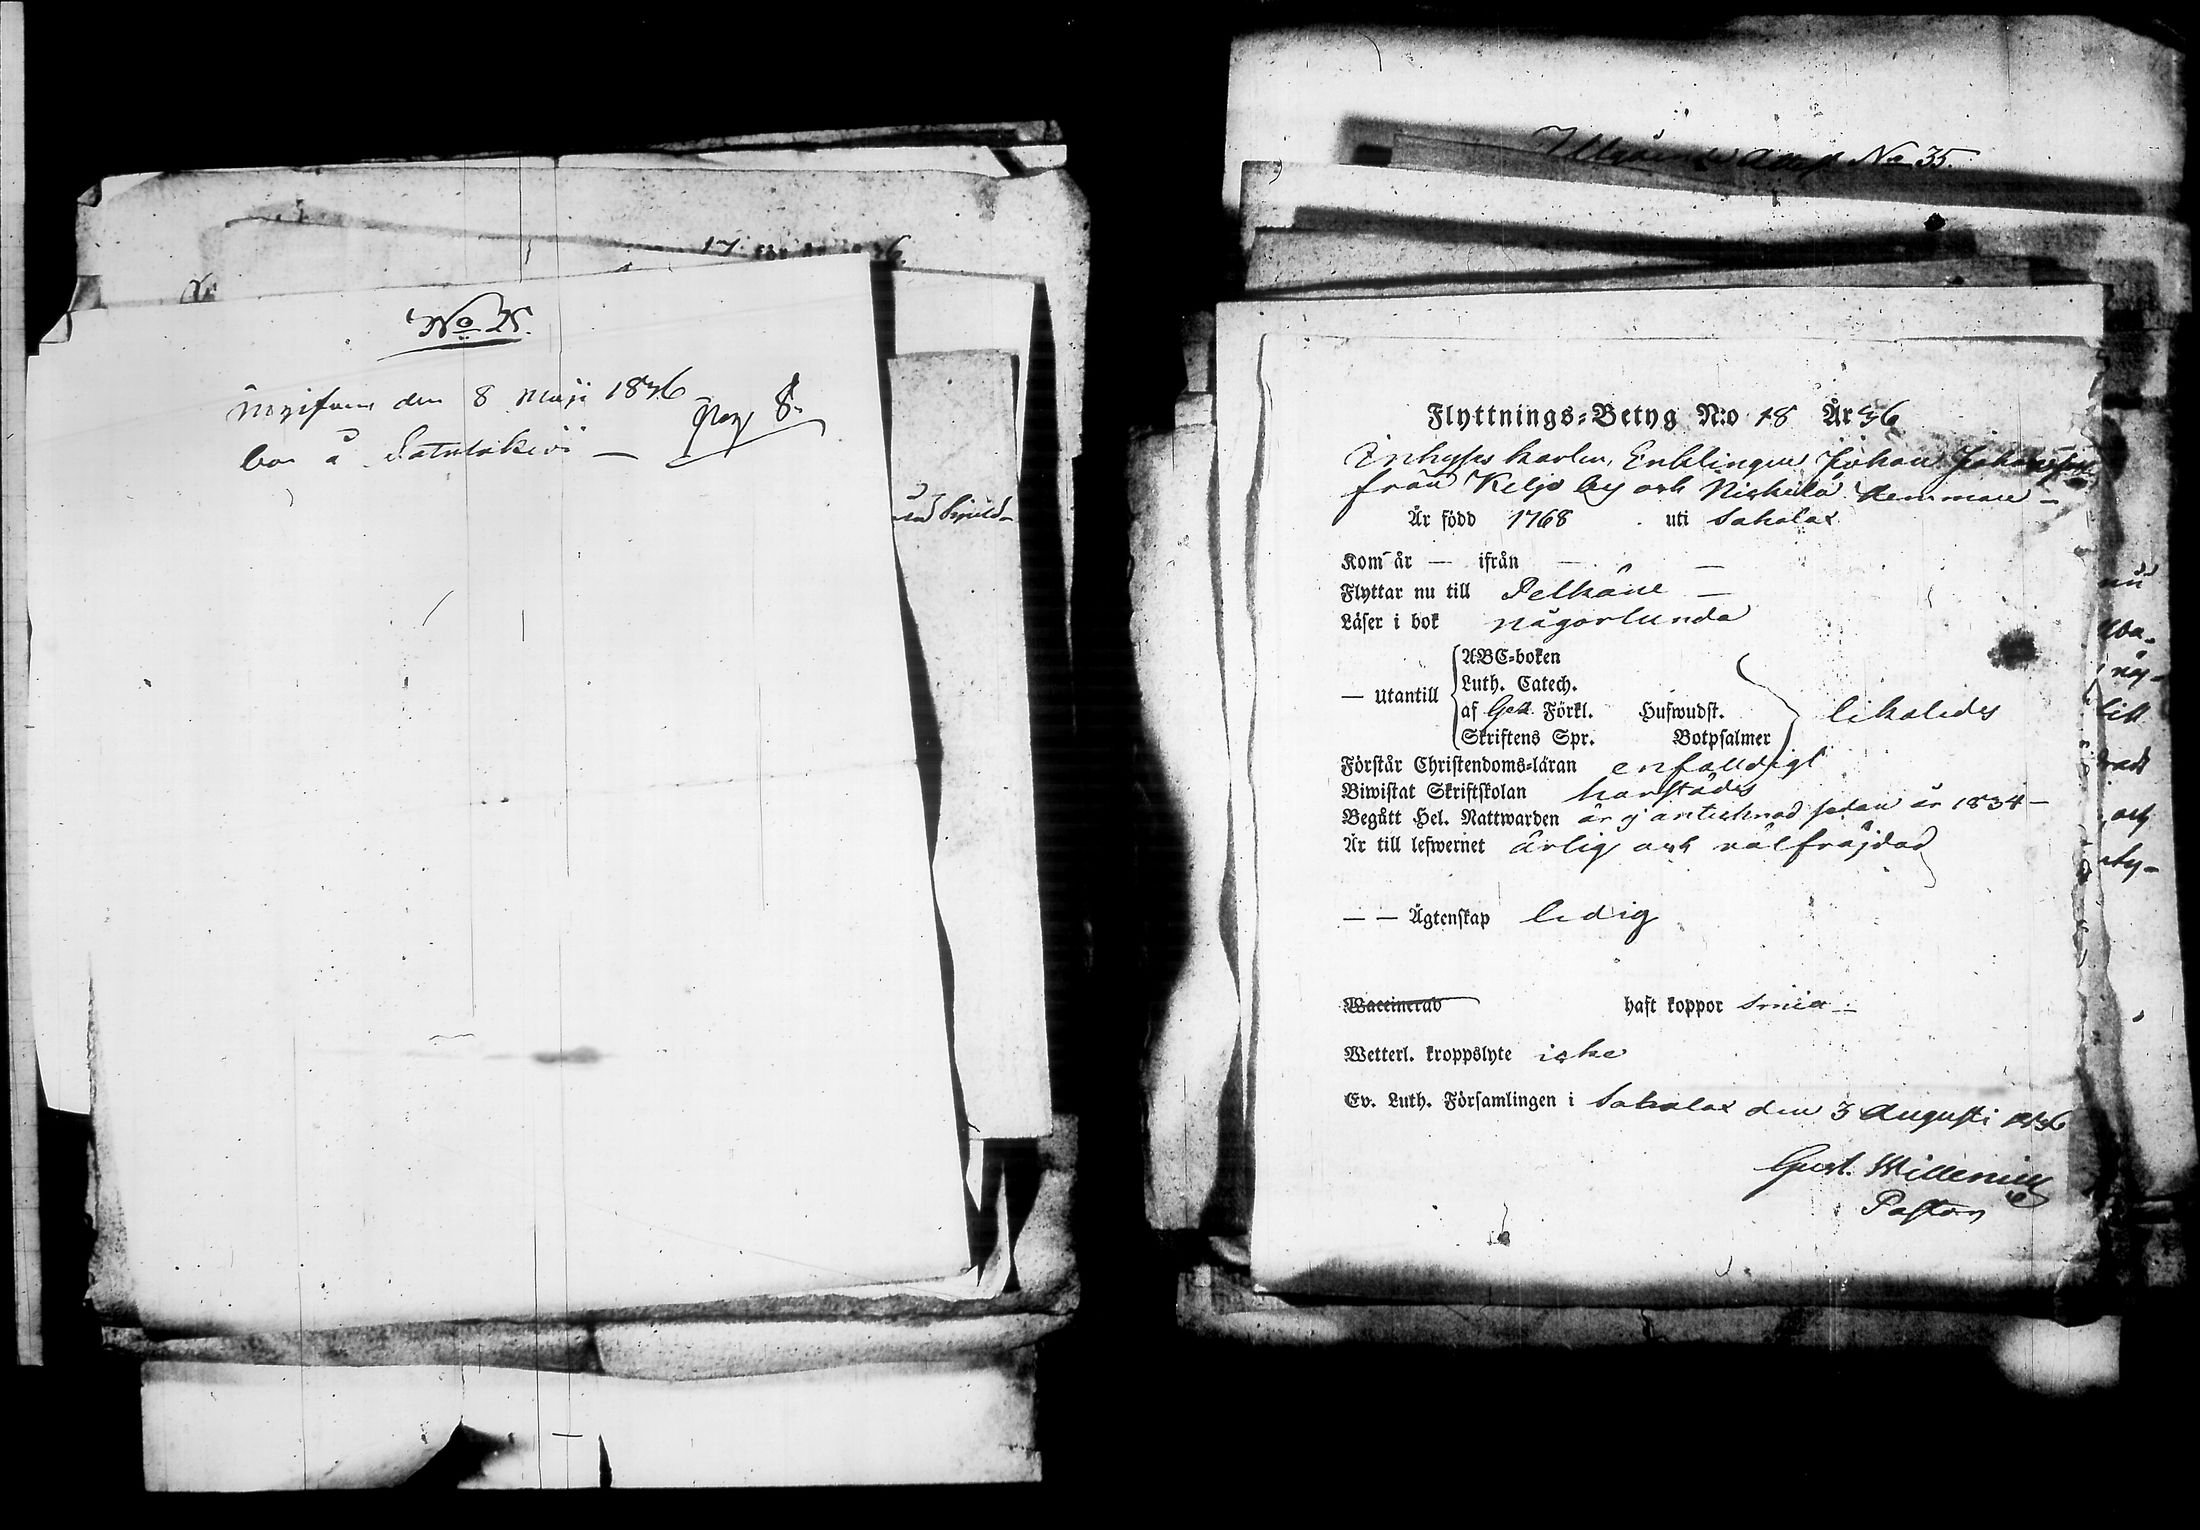 No 25.
den 8 Maji 1836
bor å Satulakivi —
pag 8.
17
Flyttnings-Betyg N:o 18 År 36
Inhyses karlen, Enklingen Johan Johansson
från Keljo by och Niskila hemman —
Är född 1768 uti Sahalax
Kom år — ifrån — —
Flyttar nu till Pelkäne —
Läser i bok någorlunda
— utantill
ABC-boken
Luth. Catech.
af Förkl. Hufwudst.
Skriftens Spr. Botpsalmer
likaledes
Förstår Christendoms-läran enfalldigt
Biwistat Skriftskolan härstädes
Begått Hel. Nattwarden är ej antecknad sedan år 1834 —
Är till lefwernet ärlig och välfräjdad
— — Ägtenskap ledig
Waccinerad haft koppor smea —
Wetterl. kroppslyte icke
Ev. Luth. Församlingen i Sahalax den 3 Augusti 1836
Gust. Willenius
Pastor
No 35.